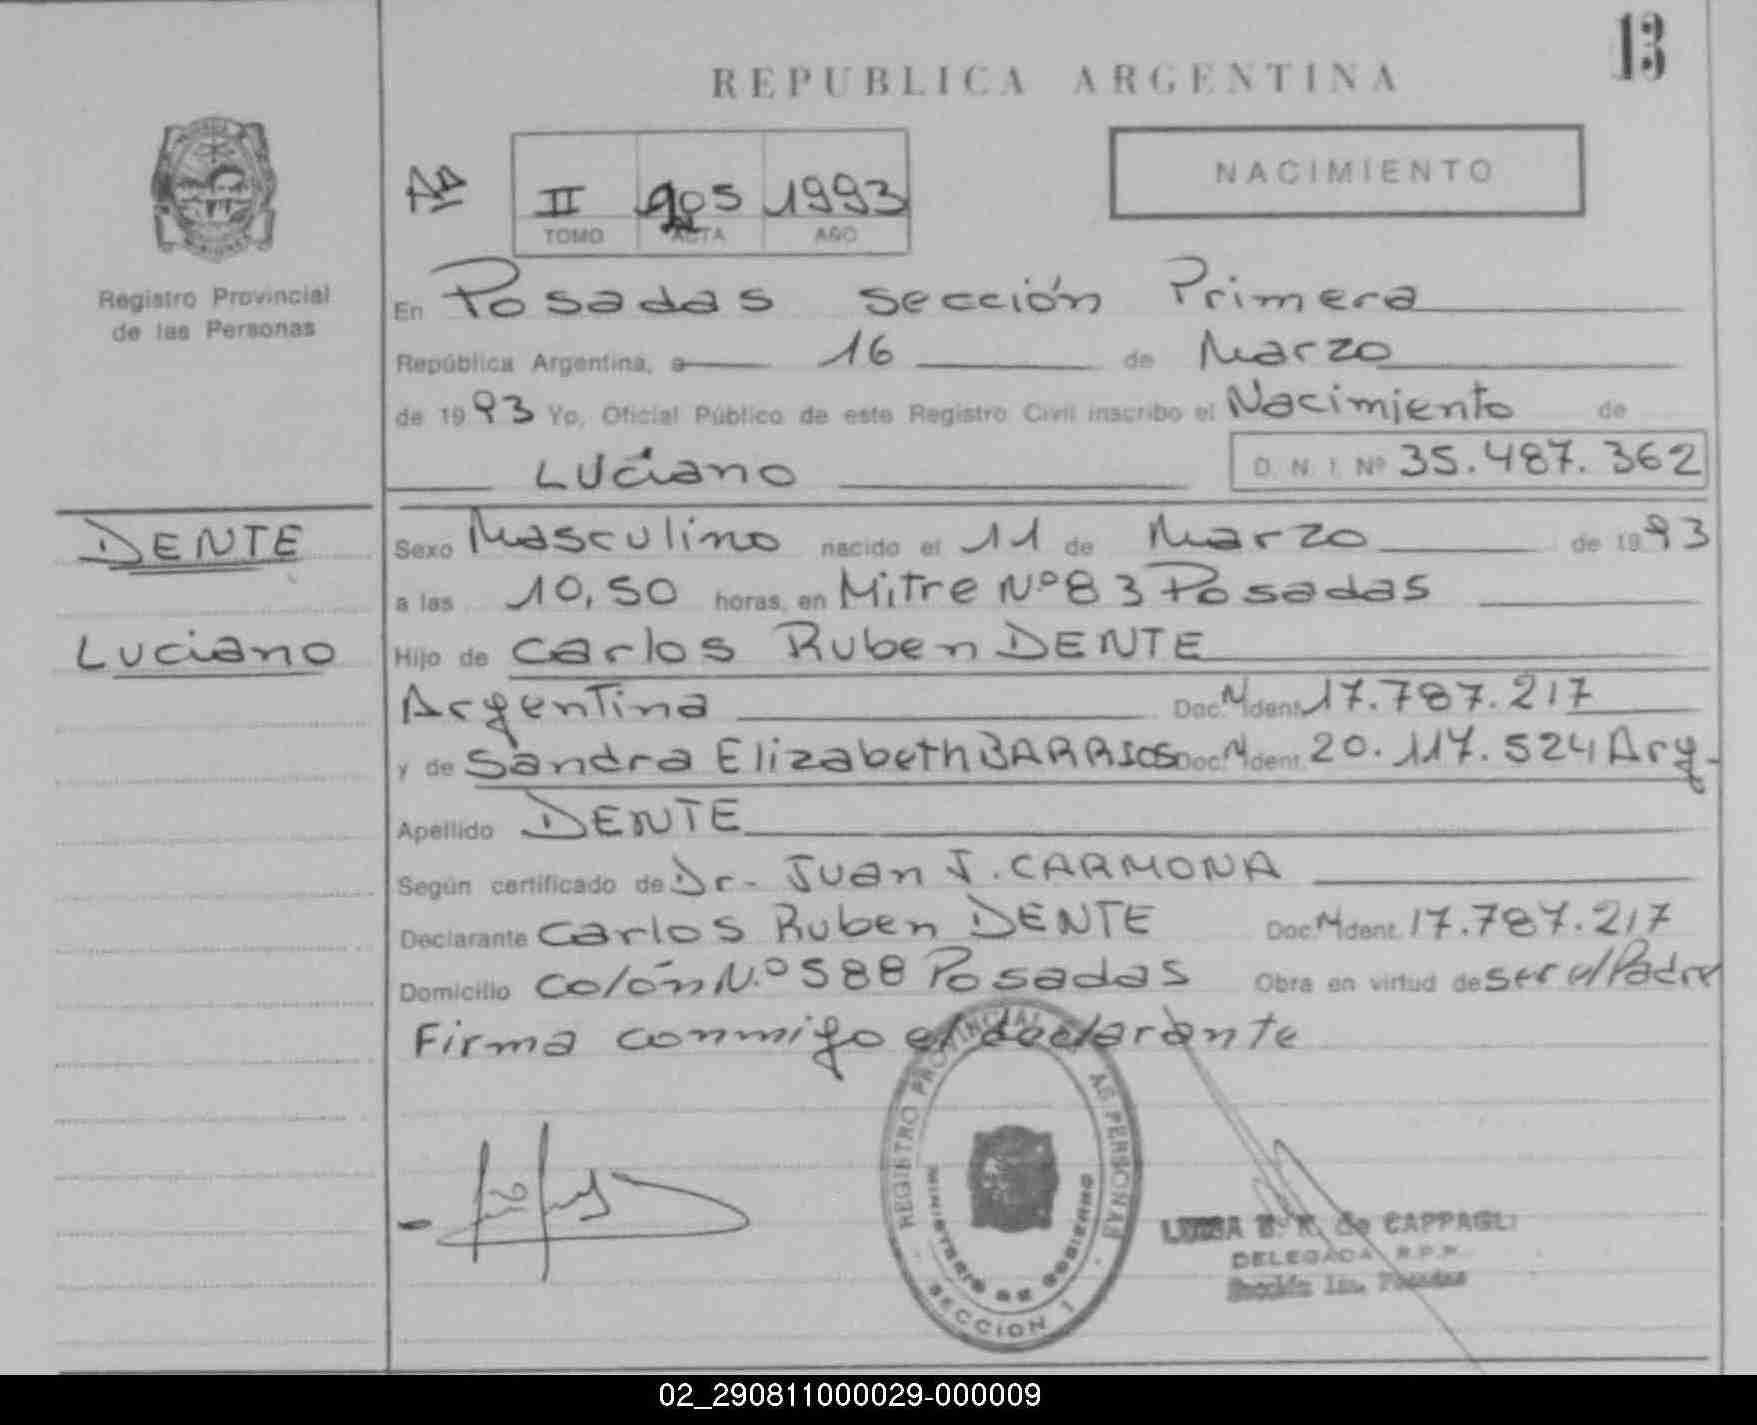 13
REPUBLICA ARGENTINA
NACIMIENTO
II 1993
TOMO ACTA AÑO
Registro Provincial
de las Personas
En Posadas sección Primera
República Argentina, a 16 de Marzo
de 1993 Yo, Oficial Público de este Registro Civil inscribo el Nacimiento de
Luciano D. N. I. Nº 35.487.362
DENTE
Luciano
Sexo Masculino nacido el 11 de Marzo de 1993
a las 10,50 horas, en Mitre Nº 83 Posadas
Hijo de Carlos Ruben DENTE
Argentina Doc. N Ident. 17.787.217
y de Sandra Elizabeth BARRIOS Doc. N Ident. 20.117.524 Arg.
Apellido DENTE
Según certificado de Dr. Juan J. CARMONA
Declarante Carlos Ruben DENTE Doc. N Ident. 17.787.217
Domicilio Colón N.º 588 Posadas Obra en virtud de ser el Padre
Firma conmigo el declarante
REGISTRO PROVINCIAL PERSONAS
MINISTERIO DE GOBIERNO
SECCION 1
de CAPPAGLI
DELEGADA R.P.P.
Sección 1ra. Posadas
02_290811000029-000009